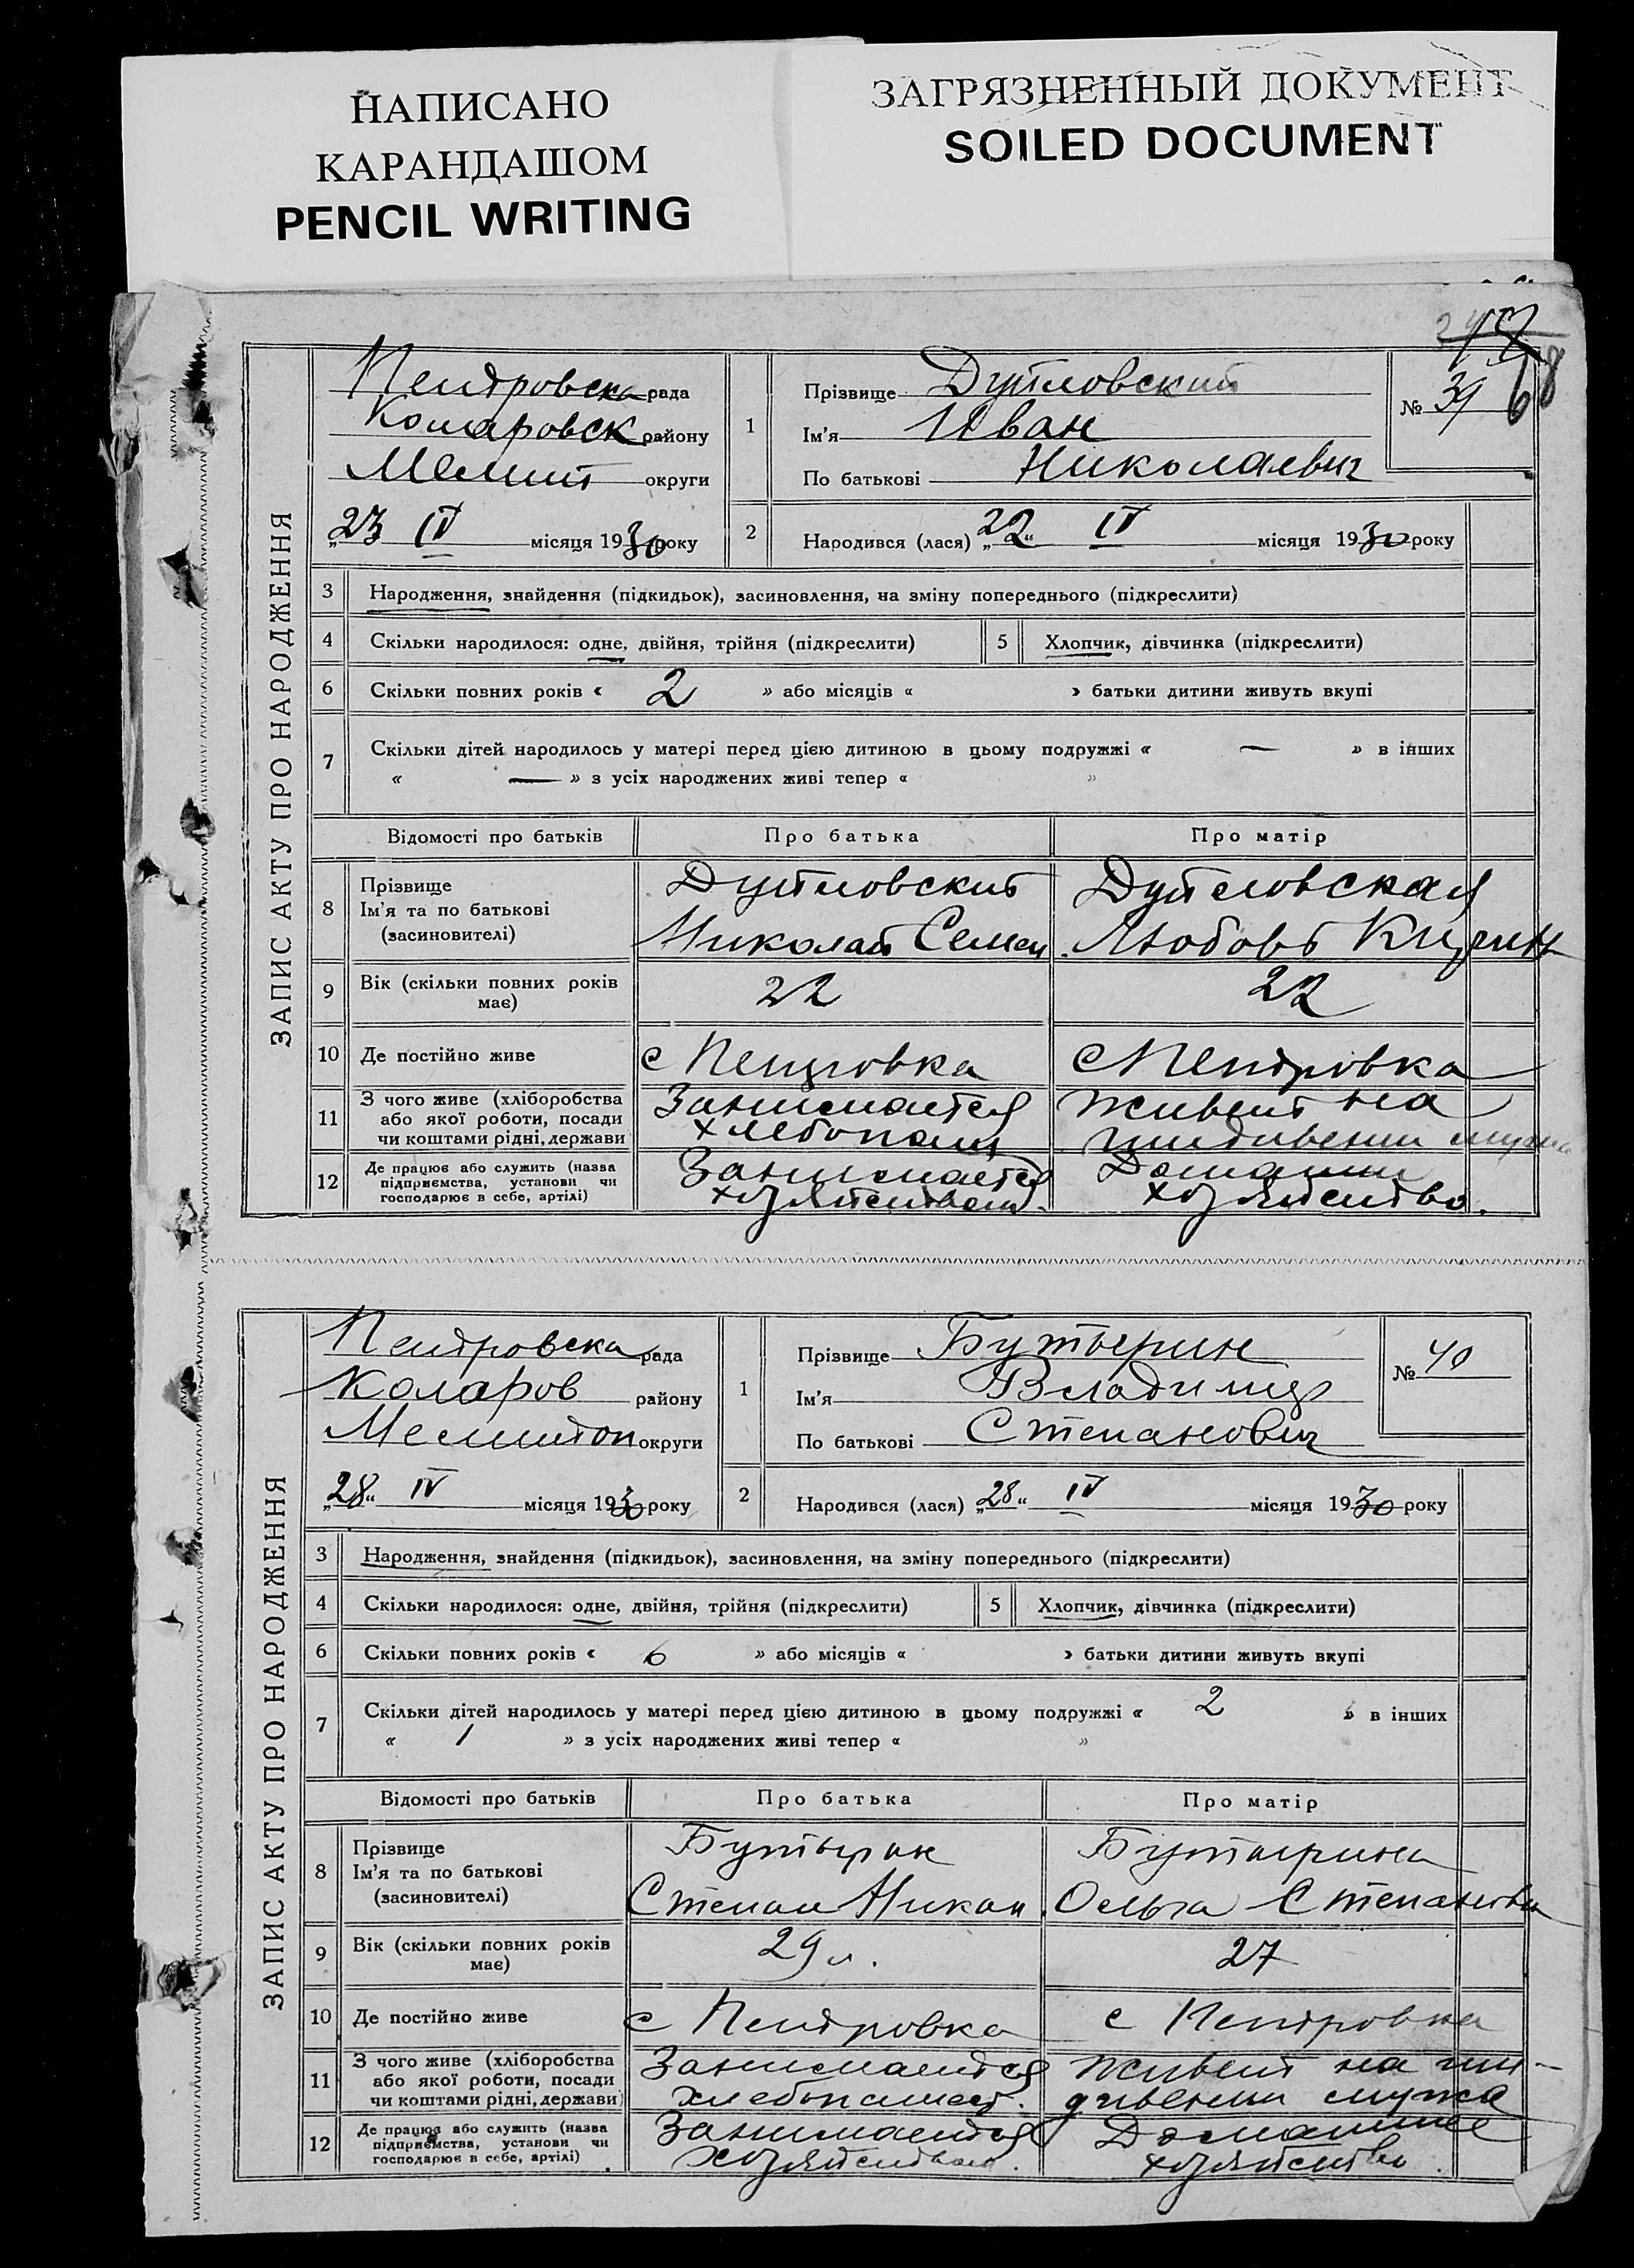 НАПИСАНО
КАРАНДАШОМ
PENCIL WRITING
ЗАГРЯЗНЕННЫЙ ДОКУМЕНТ
SOILED DOCUMENT
ЗАПИС АКТУ ПРО НАРОДЖЕННЯ
Петровска рада
Коларовск району
Мелит округи
„23 IV місяця 1930 року
1
Прізвище Дутловский
Ім'я Иван
По батькові Николаевич
№ 39
2
Народився (лася) „22“ IV місяця 1930 року
3 Народження, знайдення (підкидьок), засиновлення, на зміну попереднього (підкреслити)
4 Скільки народилося: одне, двійня, трійня (підкреслити) 5 Хлопчик, дівчинка (підкреслити)
6 Скільки повних років « 2 » або місяців « » батьки дитини живуть вкупі
7 Скільки дітей народилось у матері перед цією дитиною в цьому подружжі « — » в інших
« — » з усіх народжених живі тепер « »
Відомості про батьків Про батька Про матір
8 Прізвище
Ім'я та по батькові
(засиновителі)
Дутловский
Николай Семен
Дутловская
Любовь Кирил
9 Вік (скільки повних років
має)
22 22
10 Де постійно живе с Петровка с Петровка
11 З чого живе (хліборобства
або якої роботи, посади
чи коштами рідні, держави
Занимается
хлебопаш
Живет на
иждивении мужа
12 Де працює або служить (назва
підприємства, установи чи
господарює в себе, артілі)
Занимается
хозяйством.
Домашн
хозяйство.
ЗАПИС АКТУ ПРО НАРОДЖЕННЯ
Петровска рада
Коларов району
Мелитоп округи
„28“ IV місяця 1930 року
1
Прізвище Бутырин
Ім'я Владимир
По батькові Степанович
№ 40
2
Народився (лася) „28“ IV місяця 1930 року
3 Народження, знайдення (підкидьок), засиновлення, на зміну попереднього (підкреслити)
4 Скільки народилося: одне, двійня, трійня (підкреслити) 5 Хлопчик, дівчинка (підкреслити)
6 Скільки повних років « 6 » або місяців « » батьки дитини живуть вкупі
7 Скільки дітей народилось у матері перед цією дитиною в цьому подружжі « 2 » в інших
« 1 » з усіх народжених живі тепер « »
Відомості про батьків Про батька Про матір
8 Прізвище
Ім'я та по батькові
(засиновителі)
Бутырин
Степан Никан
Бутырина
Ольга Степановн
9 Вік (скільки повних років
має)
29 л. 27
10 Де постійно живе с Петровка с Петровка
11 З чого живе (хліборобства
або якої роботи, посади
чи коштами рідні, держави)
Занимается
хлебопашест.
Живет на иж-
дивении мужа
12 Де працює або служить (назва
підприємства, установи чи
господарює в себе, артілі)
Занимается
хозяйством.
Домашнее
хозяйство.